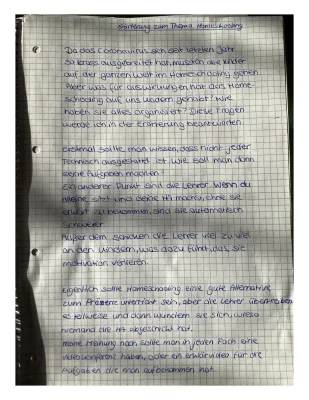 Erörterung zum Thema Homeschooling
Da das Coronavirus sich seit letztem Jahr
so krass ausgebreitet hat, mussten alle Kinder
auf der ganzen Welt im Homeschooling gehen.
Aber was für Auswirkungen hat das Home-
schooling auf uns Kindern gehabt? Wie
haben sie alles organisiert? Diese Fragen
werde ich in der Erörterung beantworten.
Erstmal sollte man wissen, dass nicht jeder
Technisch ausgestattet ist. Wie soll man dann
seine Aufgaben machen?
Ein anderer Punkt sind die Lehrer. Wenn du
alleine sitzt und deine HA machen, ohne sie
erklärt zu bekommen, sind sie automatisch
schwerer.
Außerdem schicken die Lehrer viel zu viel
an den Kindern, was dazu führt, das sie
motivation verlieren.
Eigentlich sollte Homeschooling eine gute Alternative
zum Präsenzunterricht sein, aber die Lehrer übertreiben
es teilweise und dann wundern sie sich, wieso
niemand die HA abgeschickt hat.
Meine Meinung nach sollte man in jedem Fach eine
Videokonferenz haben, oder ein Erklärvideo für die
Aufgaben die man aufbekommen hat.